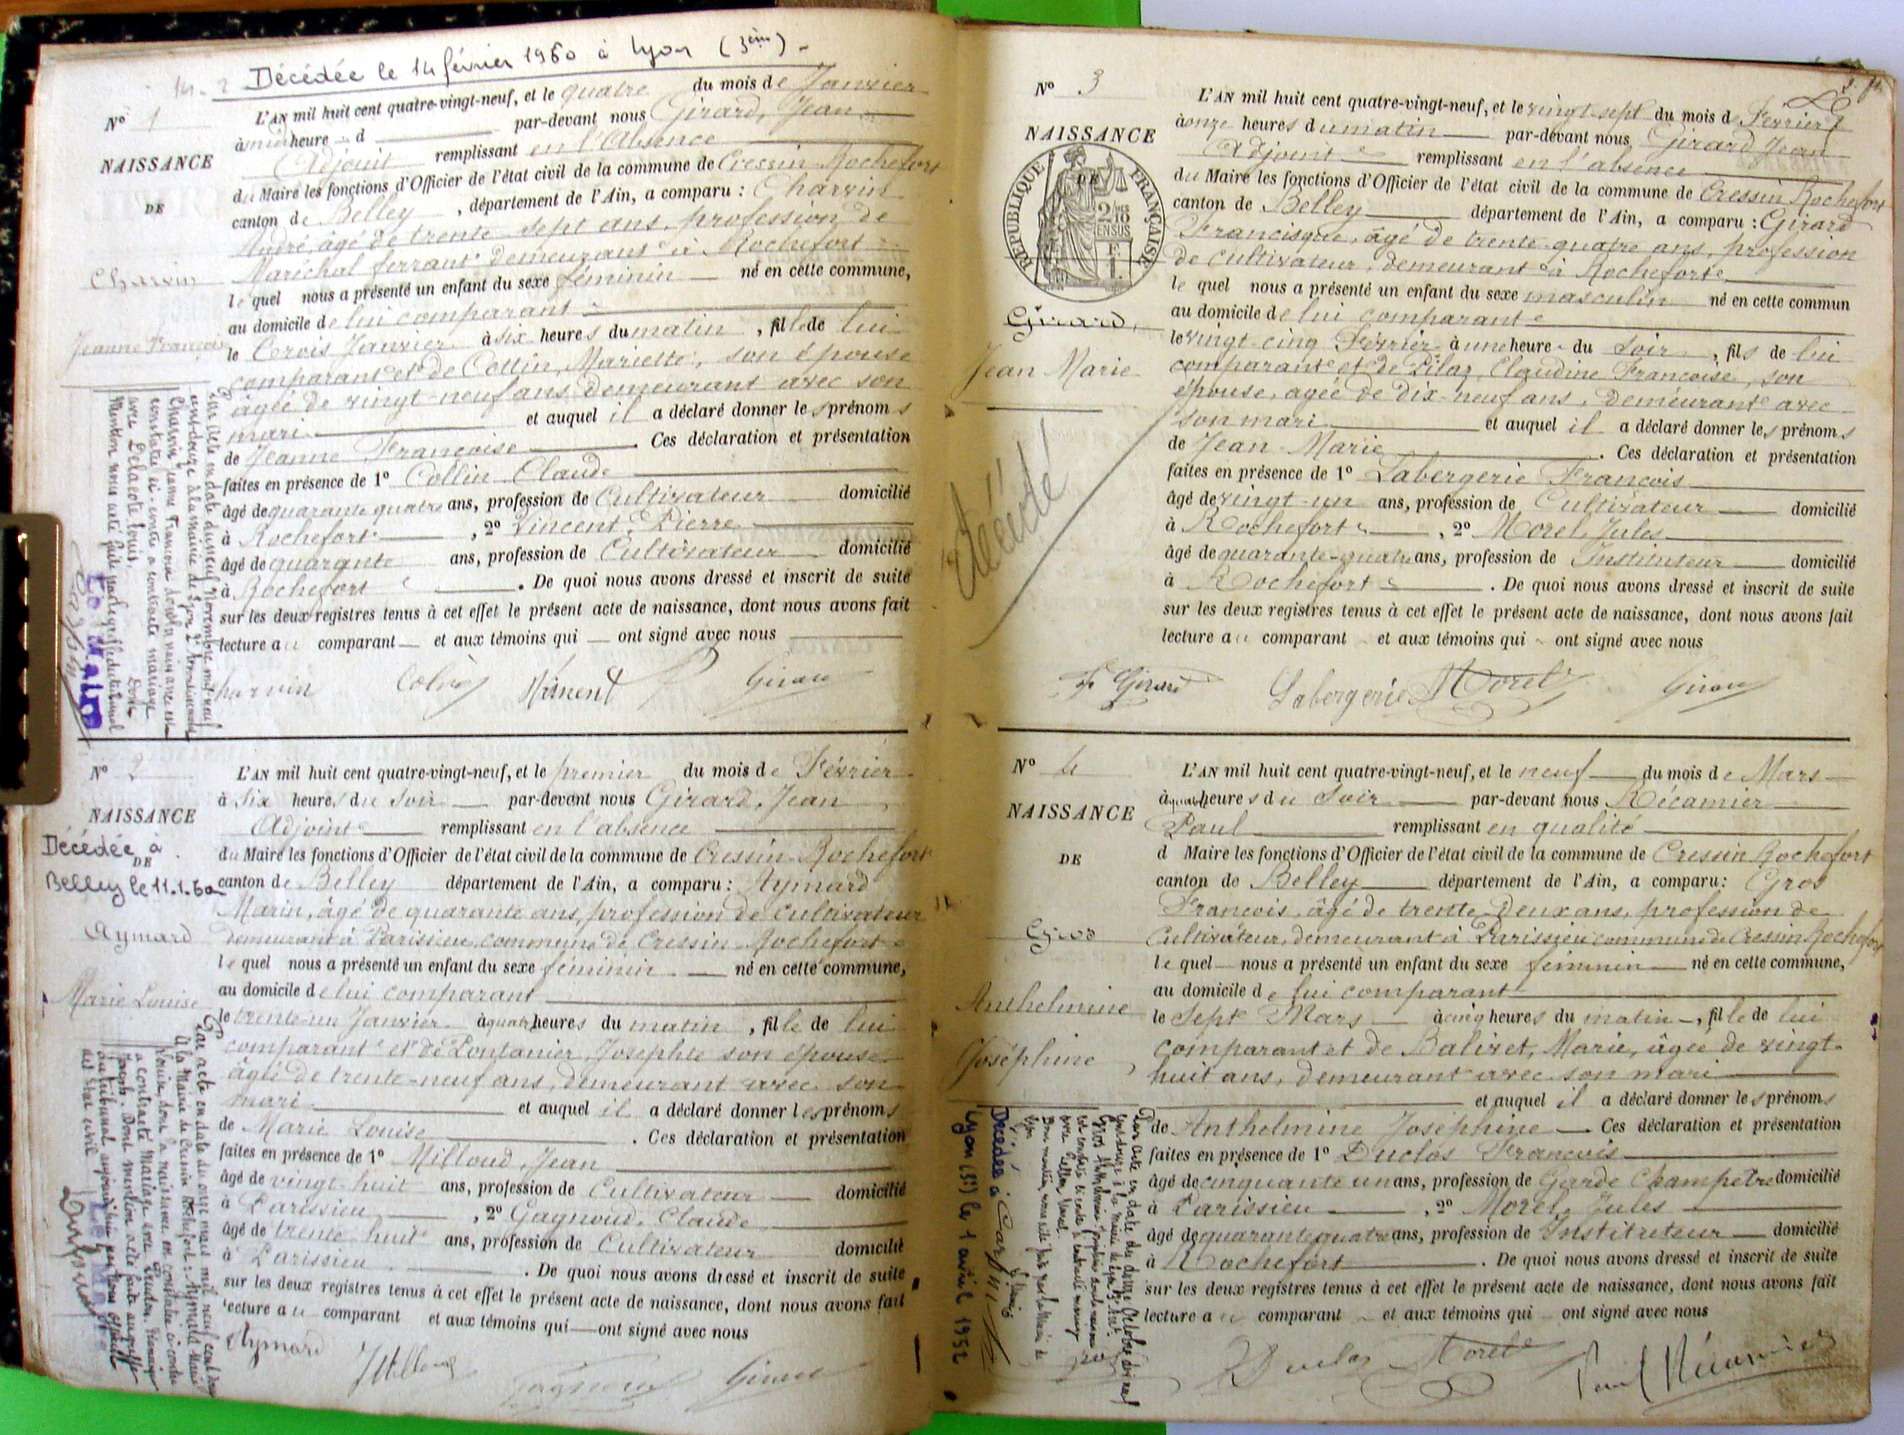 Décédée le 14 février 1960 à Lyon (3ème) -
N° 1
NAISSANCE
DE
Charvin
Jeanne Françoise
L'AN mil huit cent quatre-vingt-neuf, et le quatre du mois de Janvier
à midi heure d par-devant nous Girard, Jean
Adjoint remplissant en l'absence
du Maire les fonctions d'Officier de l'état civil de la commune de Cressin Rochefort
canton de Belley, département de l'Ain, a comparu : Charvin
André, âgé de trente sept ans, profession de
Maréchal ferrant demeurant à Rochefort
le quel nous a présenté un enfant du sexe féminin né en cette commune,
au domicile de lui comparant
le trois Janvier à six heures du matin, fille de lui
comparant et de Collin, Mariette, son épouse
âgée de vingt-neuf ans, demeurant avec son
mari et auquel il a déclaré donner les prénoms
de Jeanne Françoise. Ces déclaration et présentation
faites en présence de 1° Collin Claude
âgé de quarante quatre ans, profession de Cultivateur domicilié
à Rochefort, 2° Vincent, Pierre
âgé de quarante ans, profession de Cultivateur domicilié
à Rochefort. De quoi nous avons dressé et inscrit de suite
sur les deux registres tenus à cet effet le présent acte de naissance, dont nous avons fait
lecture au comparant et aux témoins qui ont signé avec nous
Charvin Girard
Le Maire
N° 2
NAISSANCE
DE
Décédée à
Belley le 11.1.60
Aymard
Marie Louise
L'AN mil huit cent quatre-vingt-neuf, et le premier du mois de Février
à six heures du soir par-devant nous Girard, Jean
Adjoint remplissant en l'absence
du Maire les fonctions d'Officier de l'état civil de la commune de Cressin-Rochefort
canton de Belley département de l'Ain, a comparu : Aymard
Marin, âgé de quarante ans, profession de cultivateur
demeurant à Parissieu commune de Cressin-Rochefort
le quel nous a présenté un enfant du sexe féminin né en cette commune,
au domicile de lui comparant
le trente-un Janvier à quatre heures du matin, fille de lui
comparant et de Lontanier, Josephte son épouse
âgée de trente-neuf ans, demeurant avec son
mari et auquel il a déclaré donner les prénoms
de Marie Louise. Ces déclaration et présentation
faites en présence de 1° Milloud, Jean
âgé de vingt huit ans, profession de Cultivateur domicilié
à Parissieu, 2° Gagnoud, Claude
âgé de trente huit ans, profession de Cultivateur domicilié
à Parissieu. De quoi nous avons dressé et inscrit de suite
sur les deux registres tenus à cet effet le présent acte de naissance, dont nous avons fait
lecture au comparant et aux témoins qui ont signé avec nous
Aymard Girard
N° 3
NAISSANCE
DE
RÉPUBLIQUE FRANÇAISE
Girard,
Jean Marie
Décédé
L'AN mil huit cent quatre-vingt-neuf, et le vingt-sept du mois de Février
à onze heures du matin par-devant nous Girard Jean
Adjoint remplissant en l'absence
du Maire les fonctions d'Officier de l'état civil de la commune de Cressin Rochefort
canton de Belley département de l'Ain, a comparu : Girard
Francisque, âgé de trente-quatre ans, profession
de cultivateur, demeurant à Rochefort
le quel nous a présenté un enfant du sexe masculin né en cette commun
au domicile de lui comparant
le vingt-cinq Février à une heure du Soir, fils de lui
comparant et de Pilaz, Claudine Francoise, son
épouse, agée de Dix-neuf ans, Demeurant avec
son mari et auquel il a déclaré donner les prénoms
de Jean-Marie. Ces déclaration et présentation
faites en présence de 1° Labergerie Francois
âgé de vingt-un ans, profession de Cultivateur domicilié
à Rochefort, 2° Morel, Jules
âgé de quarante-quatre ans, profession de Instituteur domicilié
à Rochefort. De quoi nous avons dressé et inscrit de suite
sur les deux registres tenus à cet effet le présent acte de naissance, dont nous avons fait
lecture au comparant et aux témoins qui ont signé avec nous
F Girard Labergerie Morel Girard
N° 4
NAISSANCE
DE
Gros
Anthelmine
Joséphine
L'AN mil huit cent quatre-vingt-neuf, et le neuf du mois de Mars
à quatre heures du Soir par-devant nous Récamier
Paul remplissant en qualité
d Maire les fonctions d'Officier de l'état civil de la commune de Cressin Rochefort
canton de Belley département de l'Ain, a comparu : Gros
Francois, âgé de trente-deux ans, profession de
Cultivateur, demeurant à Parissieu commune de Cressin Rochefort
le quel nous a présenté un enfant du sexe féminin né en cette commune,
au domicile de lui comparant
le Sept Mars à cinq heures du matin, fille de lui
comparant et de Balivet, Marie, âgée de vingt-
huit ans, demeurant avec son mari
et auquel il a déclaré donner les prénoms
de Anthelmine Joséphine Ces déclaration et présentation
faites en présence de 1° Duclos Francois
âgé de cinquante un ans, profession de Garde Champetre domicilié
à Parissieu, 2° Morel, Jules
âgé de quarante quatre ans, profession de Institeteur domicilié
à Rochefort. De quoi nous avons dressé et inscrit de suite
sur les deux registres tenus à cet effet le présent acte de naissance, dont nous avons fait
lecture au comparant et aux témoins qui ont signé avec nous
Duclos Morel Paul Récamier
Décédée à
Lyon (5e) le 1 avril 1952